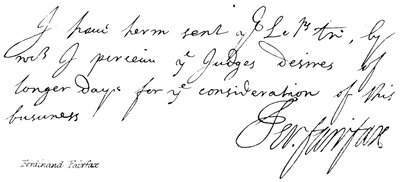 I haue herin sent yͤ Lrͤs tri, by
wcͪ I perceiue yͤ Judges desires of
longer dayes for yͤ consideration of this
busuness
Fer. fairfax
Ferdinand Fairfax